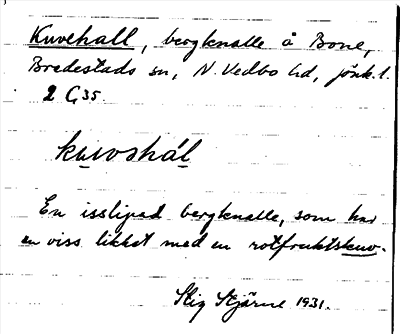 Kuvehall, bergknalle å Bone,
Bredestads sn, N. Vedbo hd, jönk. l.
2 G35.
kuvoshál
En isslipad bergknalle, som har
en viss likhet med en rotfruktskuv.
Stig Stjärne 1931.